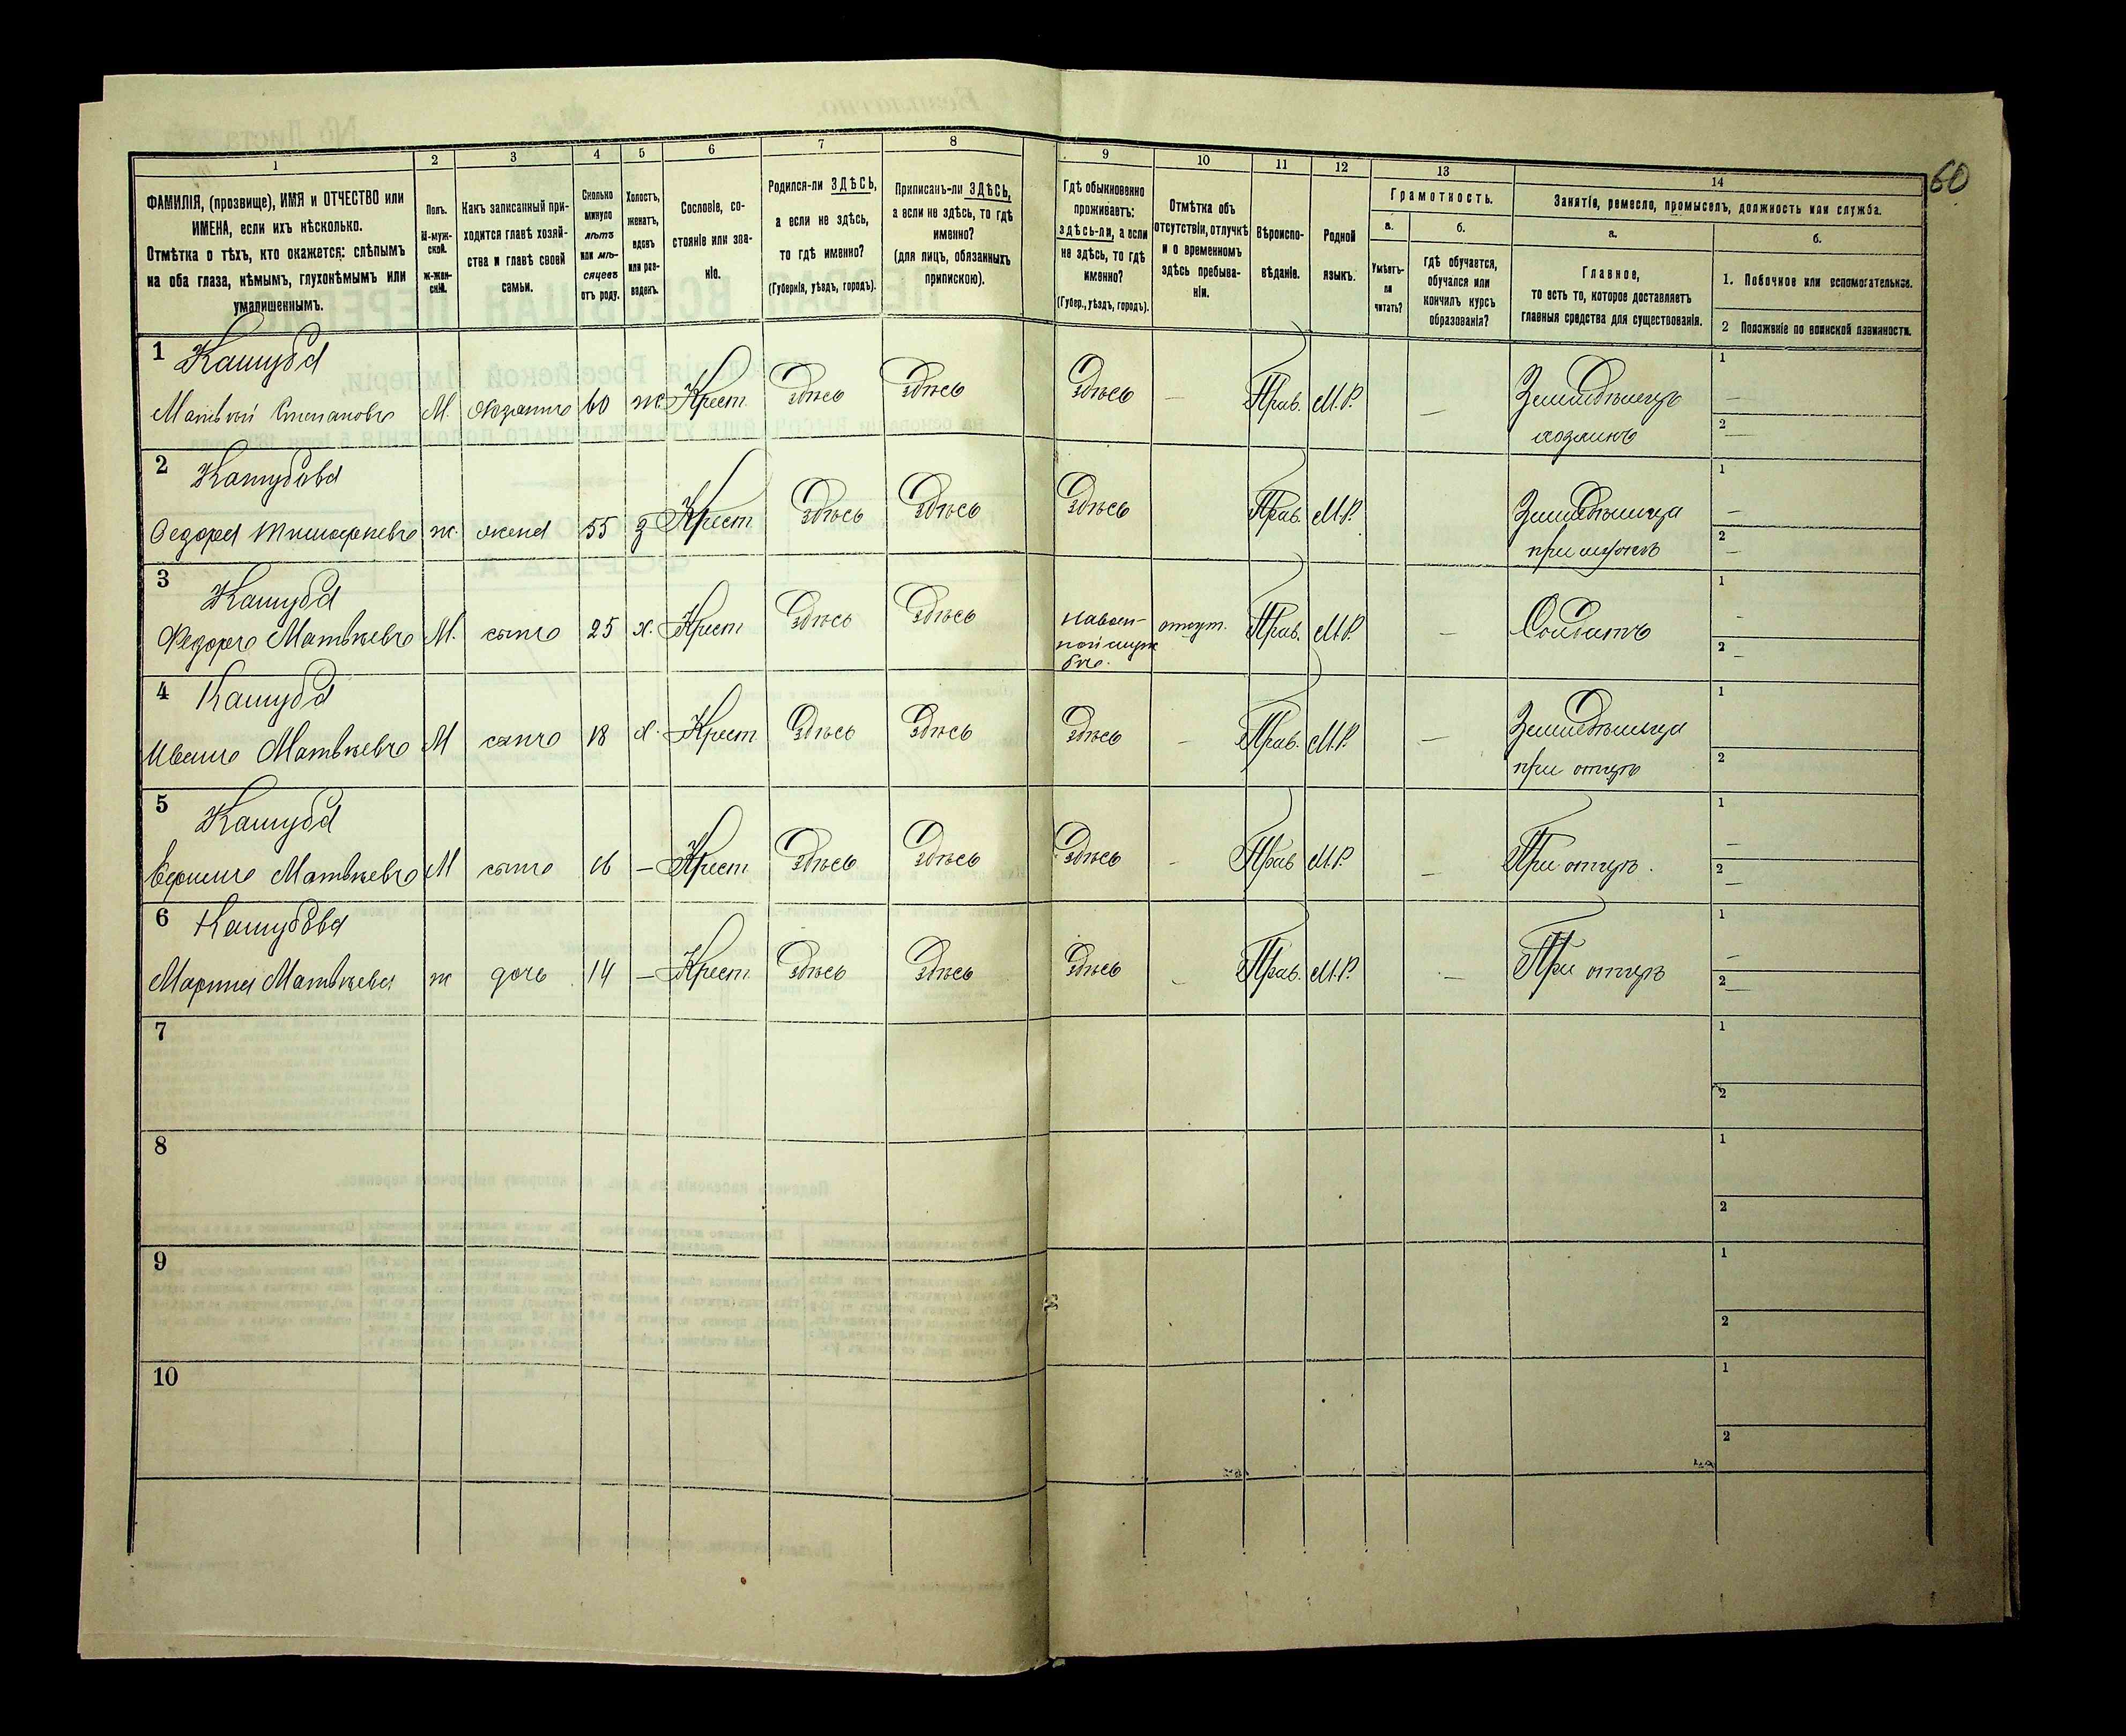 60
1 2 3 4 5 6 7 8 9 10 11 12 13 14
ФАМИЛІЯ, (прозвище), ИМЯ и ОТЧЕСТВО или
ИМЕНА, если ихъ нѣсколько.
Отмѣтка о тѣхъ, кто окажется: слѣпымъ
на оба глаза, нѣмымъ, глухонѣмымъ или
умалишеннымъ.
Полъ.
М-муж-
ской.
ж-жен-
скій.
Какъ записанный при-
ходится главѣ хозяй-
ства и главѣ своей
семьи.
Сколько
минуло
лѣтъ
или мѣ-
сяцевъ
отъ роду.
Холостъ,
женатъ,
вдовъ
или раз-
веденъ.
Сословіе, со-
стояніе или зва-
ніе.
Родился-ли ЗДѢСЬ,
а если не здѣсь,
то гдѣ именно?
(Губернія, уѣздъ, городъ).
Приписанъ-ли ЗДѢСЬ,
а если не здѣсь, то гдѣ
именно?
(для лицъ, обязанныхъ
припискою).
Гдѣ обыкновенно
проживаетъ:
здѣсь-ли, а если
не здѣсь, то гдѣ
именно?
(Губер., уѣздъ, городъ).
Отмѣтка объ
отсутствіи, отлучкѣ
и о временномъ
здѣсь пребыва-
ніи.
Вѣроиспо-
вѣданіе.
Родной
языкъ.
Грамотность.
а.
Умѣетъ-
ли
читать?
б.
гдѣ обучается,
обучался или
кончилъ курсъ
образованія?
Занятіе, ремесло, промыселъ, должность или служба.
а.
Главное,
то есть то, которое доставляетъ
главныя средства для существованія.
б.
1. Побочное или вспомогательное.
2 Положеніе по воинской повинности.
1 Кашуба
Матвѣй Степановъ М. хозяинъ 60 ж. Крест здѣсь здѣсь здѣсь – Прав. М.Р. – Земледѣлецъ
хозяинъ
1 –
2 –
2 Кашубова
Федора Тимофѣевъ ж. жена 55 з Крест здѣсь здѣсь здѣсь Прав. М.Р. Земледѣлица
при мужѣ
1 –
2 –
3 Кашуба
Федоръ Матвѣевъ М. сынъ 25 х. Крест здѣсь здѣсь на воен-
ной служ
бѣ.
отсут. Прав. М.Р. – Солдатъ
1 –
2 –
4 Кашуба
Иванъ Матвѣевъ М сынъ 18 х. Крест здѣсь здѣсь здѣсь – Прав. М.Р. – Земледѣльца
при отцѣ
1
2
5 Кашуба
Матвѣевъ М сынъ 16 – Крест здѣсь здѣсь здѣсь – Прав М.Р. – При отцѣ.
1 –
2 –
6 Кашубова
Матвѣева ж дочь 14 – Крест здѣсь здѣсь здѣсь – Прав. М.Р. – При отцѣ
1 –
2 –
7
1
2
8
1
2
9
1
2
10
1
2